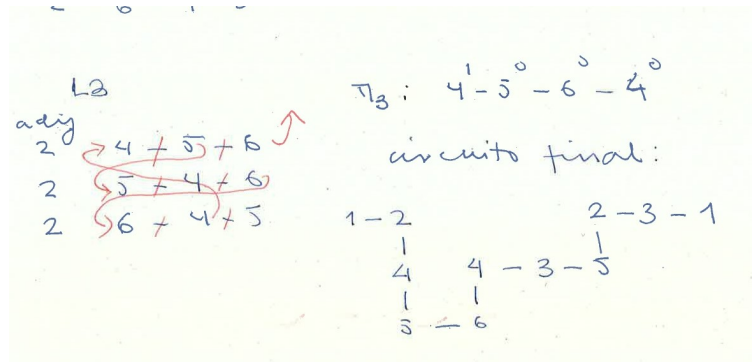 L3
adiy
2 4 + 5 + 6
2 5 + 4 + 6
2 6 + 4 + 5
π3: 4¹ - 5⁰ - 6⁰ - 4⁰
circuito final:
1 - 2 2 - 3 - 1
4 4 - 3 - 5
5 - 6